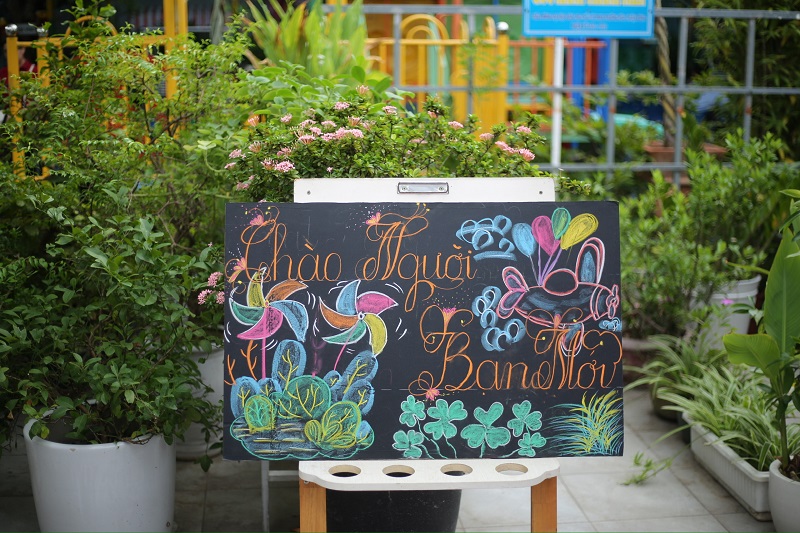 Chào Người
Bạn Mới